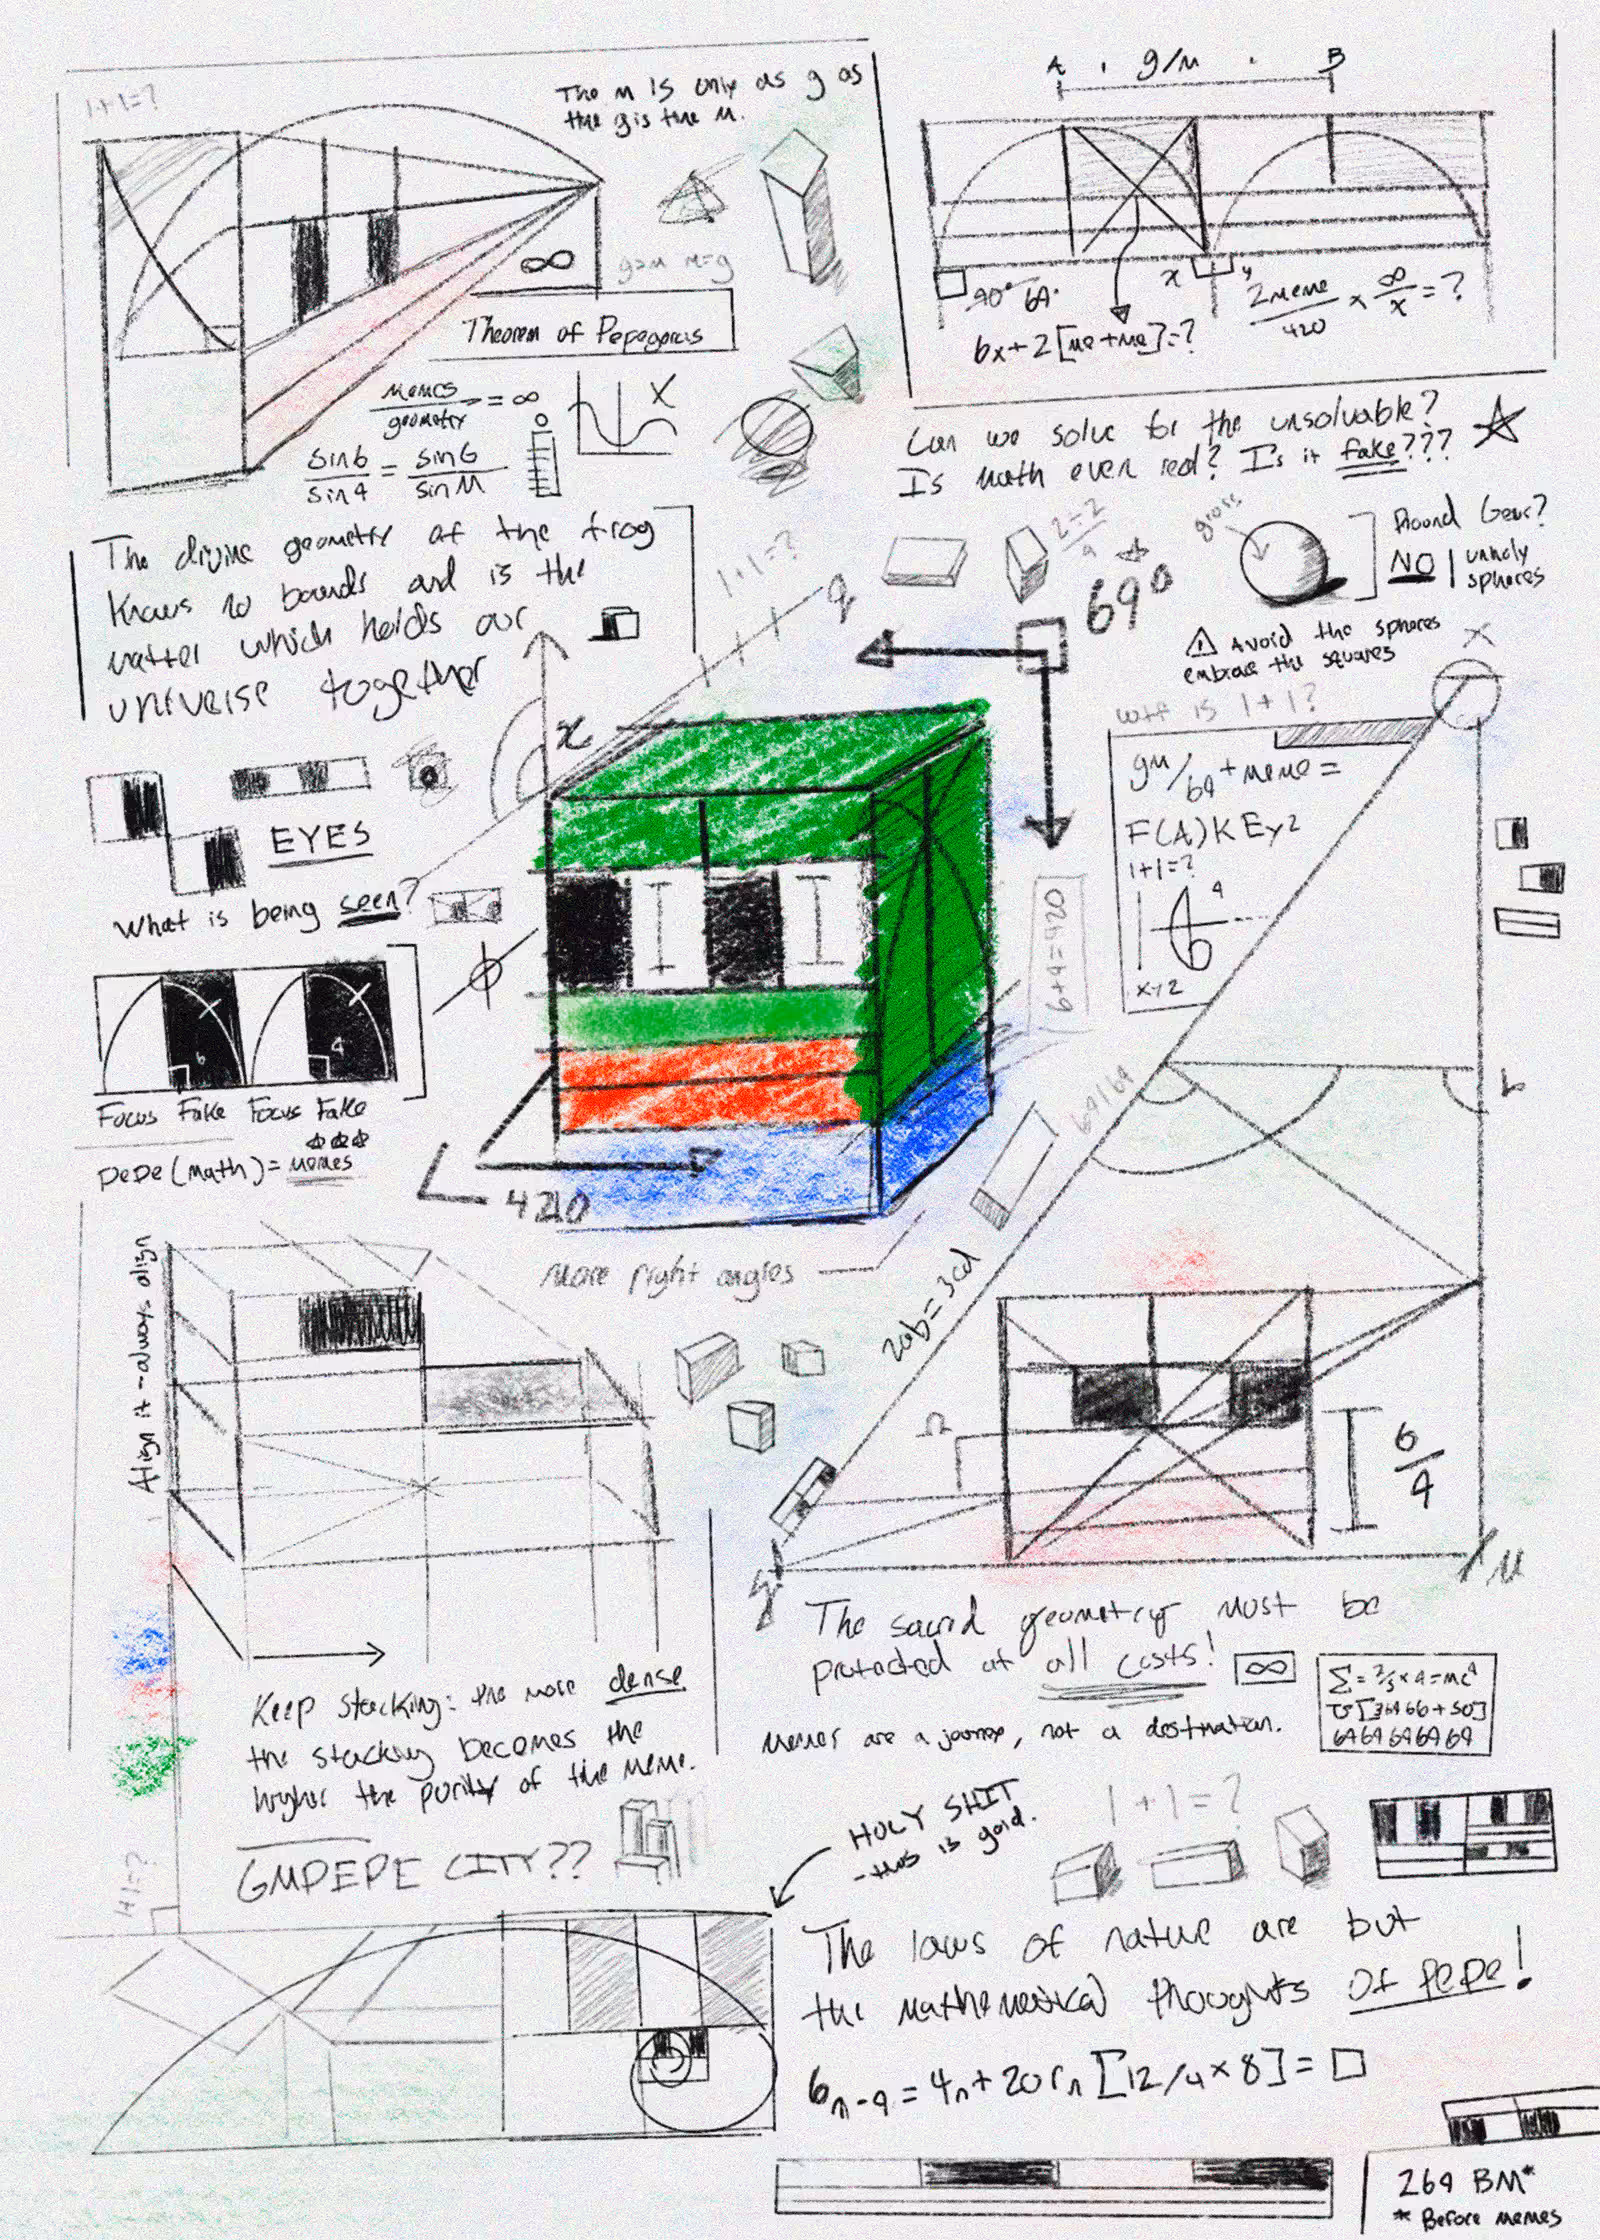 1+1=?
The M is only as g as
the g is the M.
∞
g=M M=g
Theorem of Pepegorus
Memes/geometry = ∞
sin6/sin9 = sin6/sinM
X
A . g/M . B
90° 69°
x y
6x+2[me+me]=?
2meme/420 × ∞/x = ?
Can we solve for the unsolvable?
Is math even real? Is it fake???
The divine geometry of the frog
knows no bounds and is the
matter which holds our
universe together
1+1=?
g
2=2/9
69°
gross
Round Gear?
NO | unholy
spheres
⚠ Avoid the spheres
embrace the squares
X
wtf is 1+1?
gM/69 + meme =
F(A)KEy2
1+1=?
9
6
xyz
x
EYES
What is being seen?
6 9
Focus Fake Focus Fake
pepe(math)= memes
ϕ
6+4=420
420
More right angles
69/69
L
2ab=3cd
Align it - always align
Ω
6/9
g
M
Keep stacking: the more dense
the stacking becomes the
higher the purity of the meme.
GMPEPE CITY??
1+1=?
The sacred geometry must be
protected at all costs!
∞
Memes are a journey, not a destination.
6969696969
HOLY SHIT
- this is good.
1+1=?
The laws of nature are but
the mathematical thoughts of PEPE!
6n-9 = 4n+20rn [12/4×8] = □
269 BM*
* Before memes